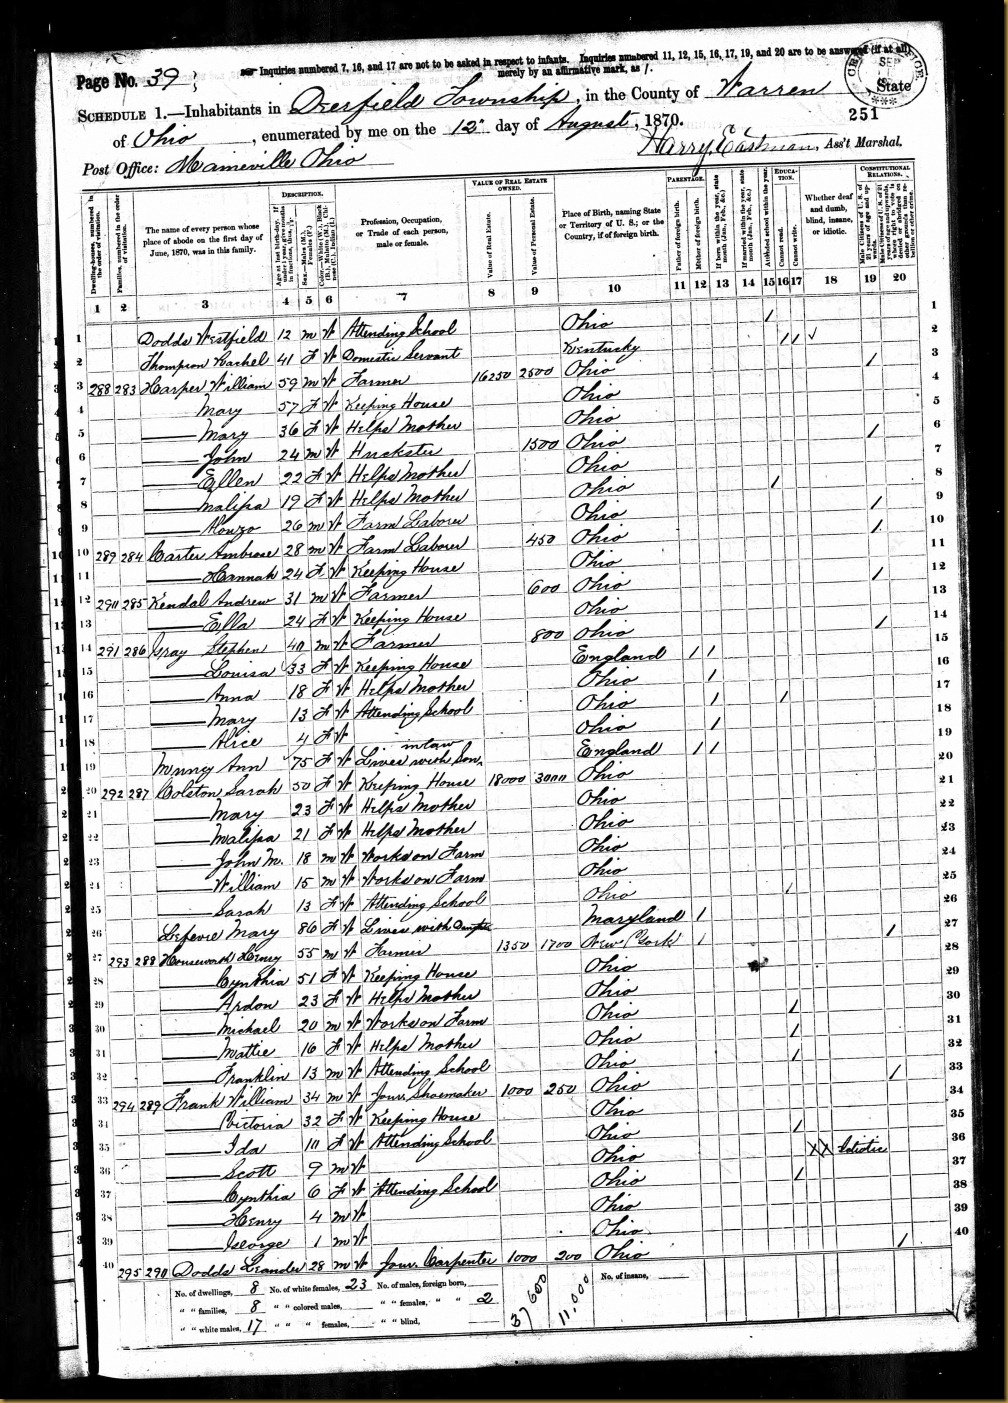 Page No. 39
Inquiries numbered 7, 16, and 17 are not to be asked in respect to infants. Inquiries numbered 11, 12, 15, 16, 17, 19, and 20 are to be answered (if at all)
merely by an affirmative mark, as /.
SCHEDULE 1.—Inhabitants in Deerfield Township, in the County of Warren, State
251
of Ohio, enumerated by me on the 12" day of August, 1870.
Post Office: Maineville Ohio
Harry Eastman, Ass't Marshal.
Dwelling-houses, numbered in the order of visitation.
Families, numbered in the order of visitation.
The name of every person whose place of abode on the first day of June, 1870, was in this family.
DESCRIPTION.
Age at last birth-day. If under 1 year, give months in fractions, thus, 3/12
Sex.—Males (M.), Females (F.)
Color.—White (W.), Black (B.), Mulatto (M.), Chinese (C.), Indian (I.)
Profession, Occupation, or Trade of each person, male or female.
VALUE OF REAL ESTATE OWNED.
Value of Real Estate.
Value of Personal Estate.
Place of Birth, naming State or Territory of U. S.; or the Country, if of foreign birth.
PARENTAGE.
Father of foreign birth.
Mother of foreign birth.
If born within the year, state month (Jan., Feb., &c.)
If married within the year, state month (Jan., Feb., &c.)
EDUCATION.
Attended school within the year.
Cannot read.
Cannot write.
Whether deaf and dumb, blind, insane, or idiotic.
CONSTITUTIONAL RELATIONS.
Male Citizens of U. S. of 21 years of age and upwards.
1 2 3 4 5 6 7 8 9 10 11 12 13 14 15 16 17 18 19 20
1 Dodds Westfield 12 m W Attending School Ohio / 1
2 Thompson Rachel 41 F W Domestic Servant Kentucky / / 2
3 288 283 Harper William 59 m W Farmer 16250 2500 Ohio / 3
4 —— Mary 57 F W Keeping House Ohio 4
5 —— Mary 36 F W Helps Mother Ohio 5
6 —— John 24 m W Huckster 1500 Ohio / 6
7 —— Ellen 22 F W Helps Mother Ohio 7
8 —— Malissa 19 F W Helps Mother Ohio / 8
9 —— Alonzo 26 m W Farm Laborer Ohio / 9
10 289 284 Carter Ambrose 28 m W Farm Laborer 450 Ohio / 10
11 —— Hannah 24 F W Keeping House Ohio 11
12 290 285 Kendal Andrew 31 m W Farmer 600 Ohio / 12
13 —— Ella 24 F W Keeping House Ohio 13
14 291 286 Gray Stephen 40 m W Farmer 800 Ohio / 14
15 —— Louisa 33 F W Keeping House England / / 15
16 —— Anna 18 F W Helps Mother Ohio / 16
17 —— Mary 13 F W Attending School Ohio / / 17
18 —— Alice 4 F W Ohio / 18
19 Ann 75 F W Lives with Son in law England / / 19
20 292 287 Colston Sarah 50 F W Keeping House 18000 3000 Ohio 20
21 —— Mary 23 F W Helps Mother Ohio 21
22 —— Malissa 21 F W Helps Mother Ohio 22
23 —— John M. 18 m W Works on Farm Ohio 23
24 —— William 15 m W Works on Farm Ohio 24
25 —— Sarah 13 F W Attending School Ohio / 25
26 Lefevre Mary 86 F W Lives with Maryland / 26
27 293 288 Houseworth Henry 55 m W Farmer 1350 1700 New York / / 27
28 —— Cynthia 51 F W Keeping House Ohio 28
29 —— Ardon 23 F W Helps Mother Ohio 29
30 —— Michael 20 m W Works on Farm Ohio / 30
31 —— Mattie 16 F W Helps Mother Ohio / 31
32 —— Franklin 13 m W Attending School Ohio / 32
33 294 289 Frank William 34 m W Jour. Shoemaker 1000 250 Ohio / 33
34 —— Victoria 32 F W Keeping House Ohio 34
35 —— Ida 10 F W Attending School Ohio / 35
36 —— Scott 9 m W Ohio XX Idiotic 36
37 —— Cynthia 6 F W Attending School Ohio / 37
38 —— Henry 4 m W Ohio 38
39 —— George 1 m W Ohio 39
40 295 290 Dodds Leander 28 m W Jour. Carpenter 1000 200 Ohio / 40
No. of dwellings, 8 No. of white females, 23 No. of males, foreign born, No. of insane,
" " families, 8 " " colored males, " " females, " " 2
" " white males, 17 " " " females, " " blind,
37600 11,000